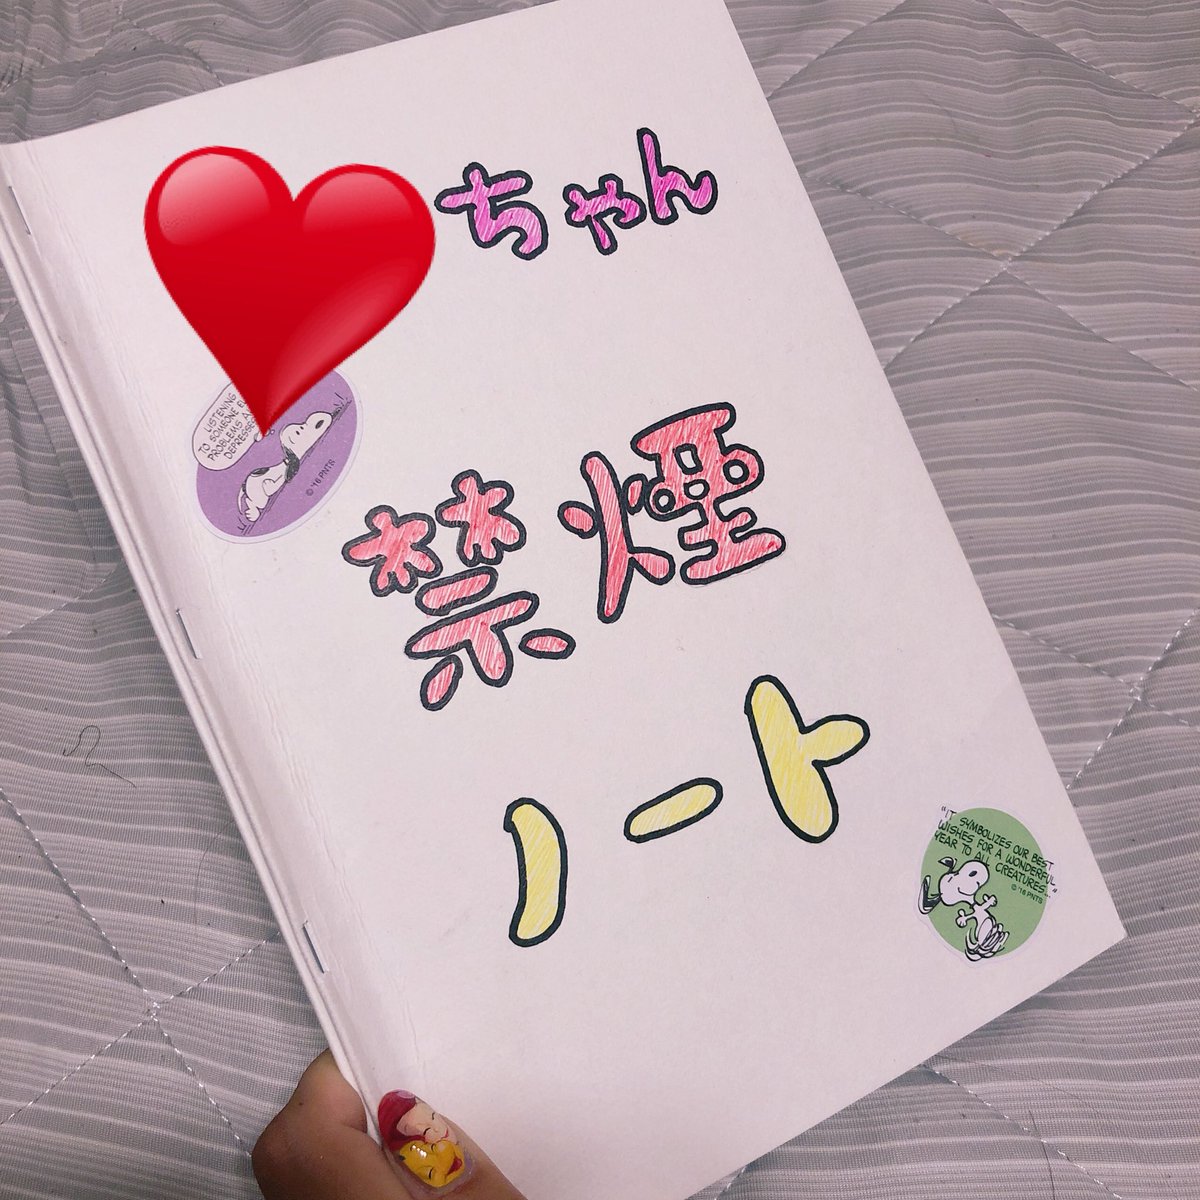 ちゃん
LISTENING
TO SOMEONE
PROBLEMS
© '16 PNTS
禁煙
ノート
"IT SYMBOLIZES OUR BEST
WISHES FOR A WONDERFUL
YEAR TO ALL CREATURES..."
© '16 PNTS